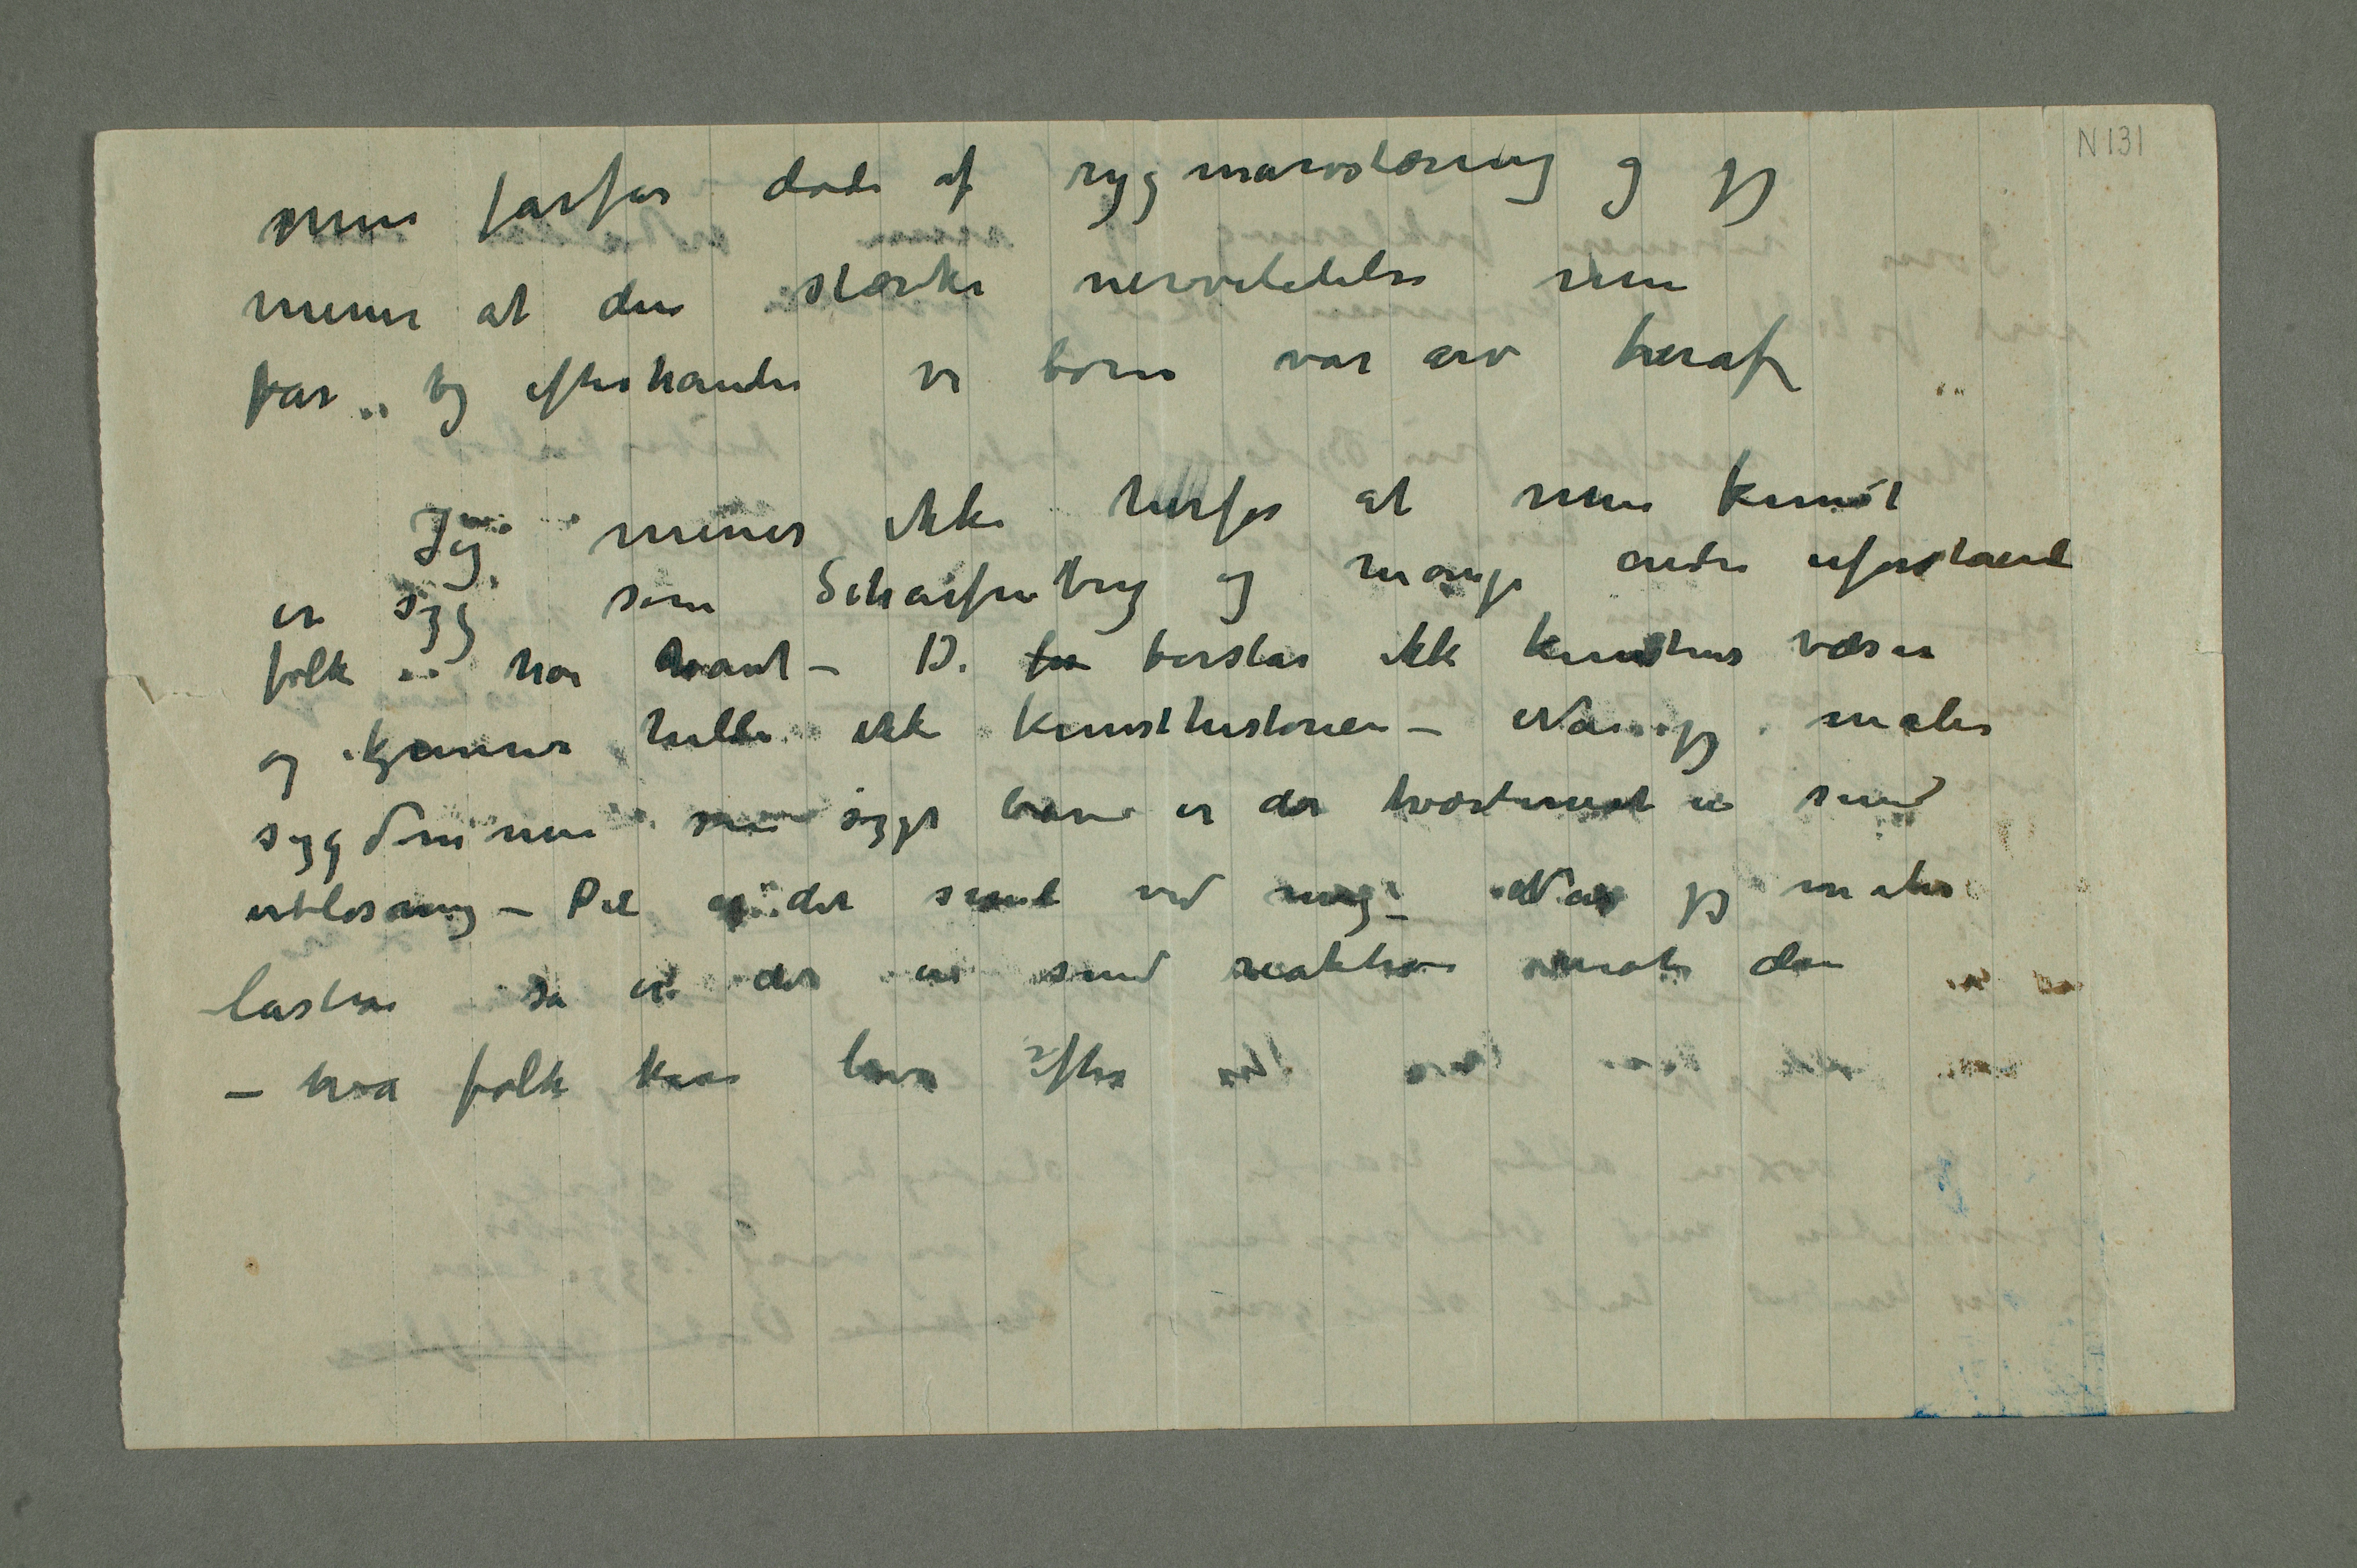 N 131
min farfar døde af rygmarvstæring og jeg
mener at den stærke nervelidelse min
far og efterhånden vi børn var arv heraf
Jeg mener ikke herfor at min kunst
er syg som Scharfenberg og mange andre uforstaend
folk har trod – D. for forstår ikk kunstens væsen
og kjenner heller ikke kunsthistorien – Når jeg maler
sygdommen som sygt barn er det tvertimot en sund
utløsning – Det er det sunde ved mig – Når jeg maler
lasten så er det en sund reaktion mot den
– hva folk kan lære efter